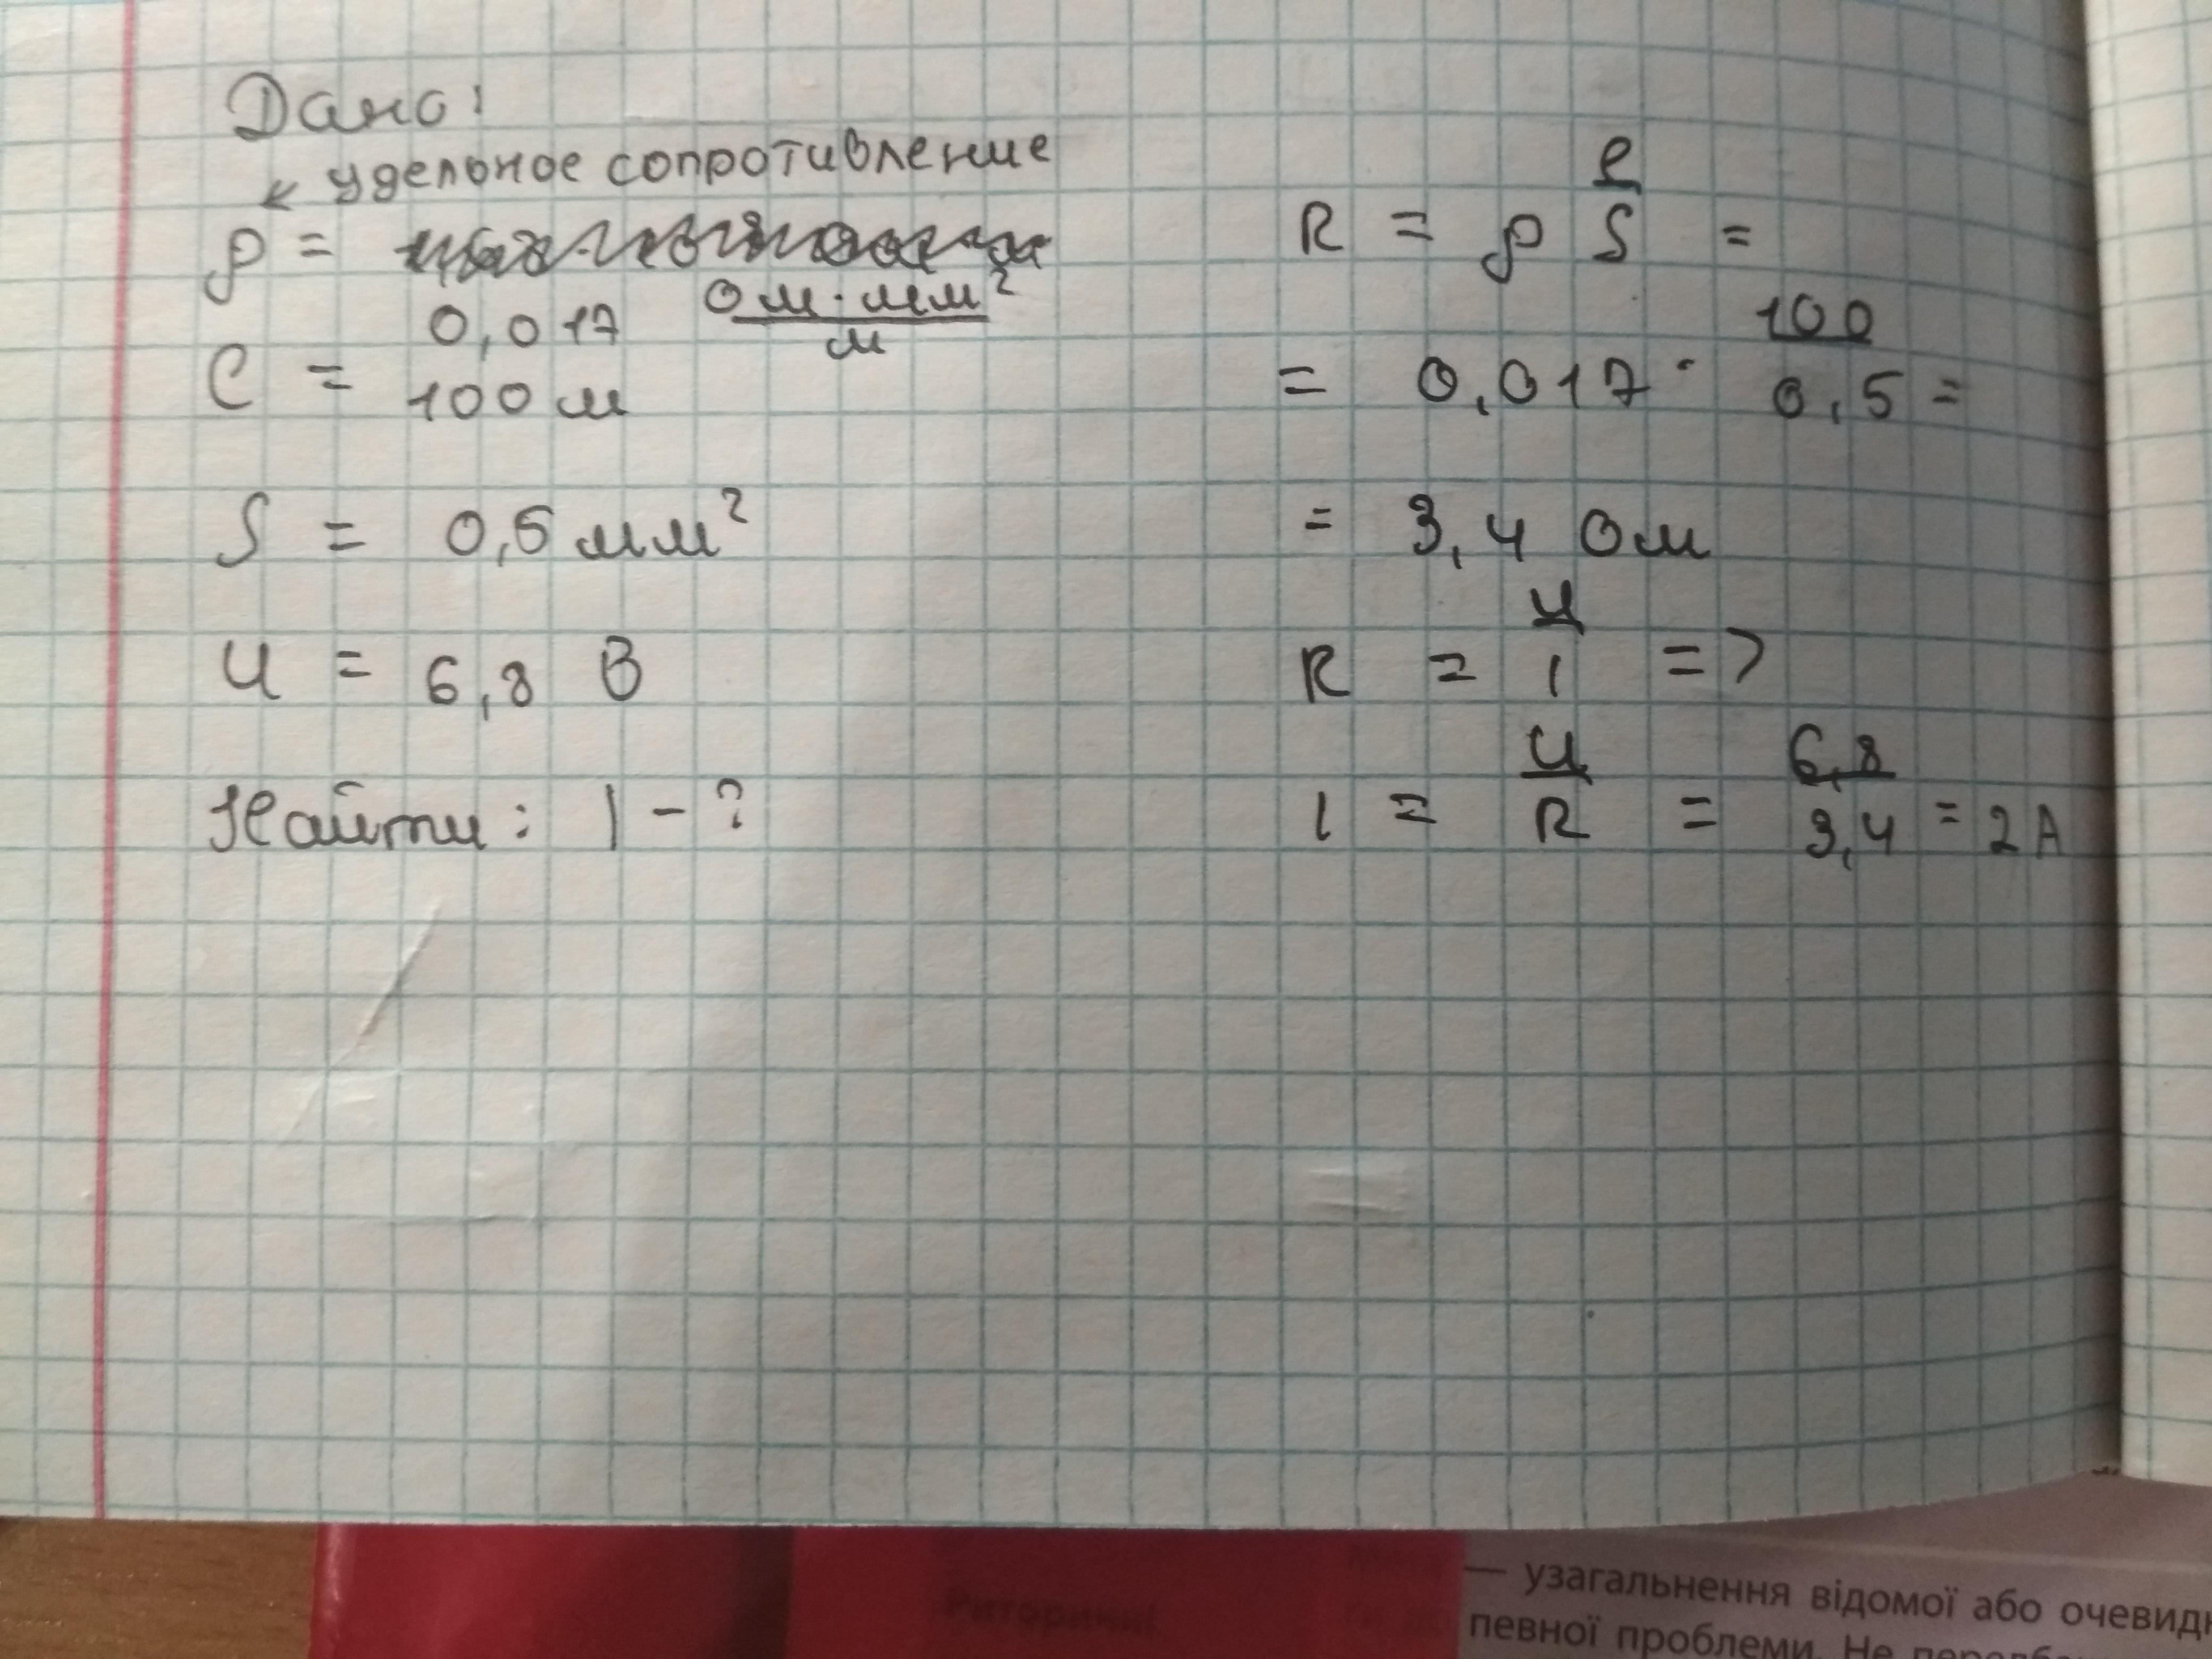 Дано:
удельное сопротивление
ρ =
0,017 Ом·мм²/м
ℓ = 100 м
S = 0,5 мм²
U = 6,8 В
Найти: I - ?
R = ρ ℓ/S =
= 0,017 · 100/0,5 =
= 3,4 Ом
R = U/I =>
I = U/R = 6,8/3,4 = 2А
— узагальнення відомої або
певної проблеми. Не